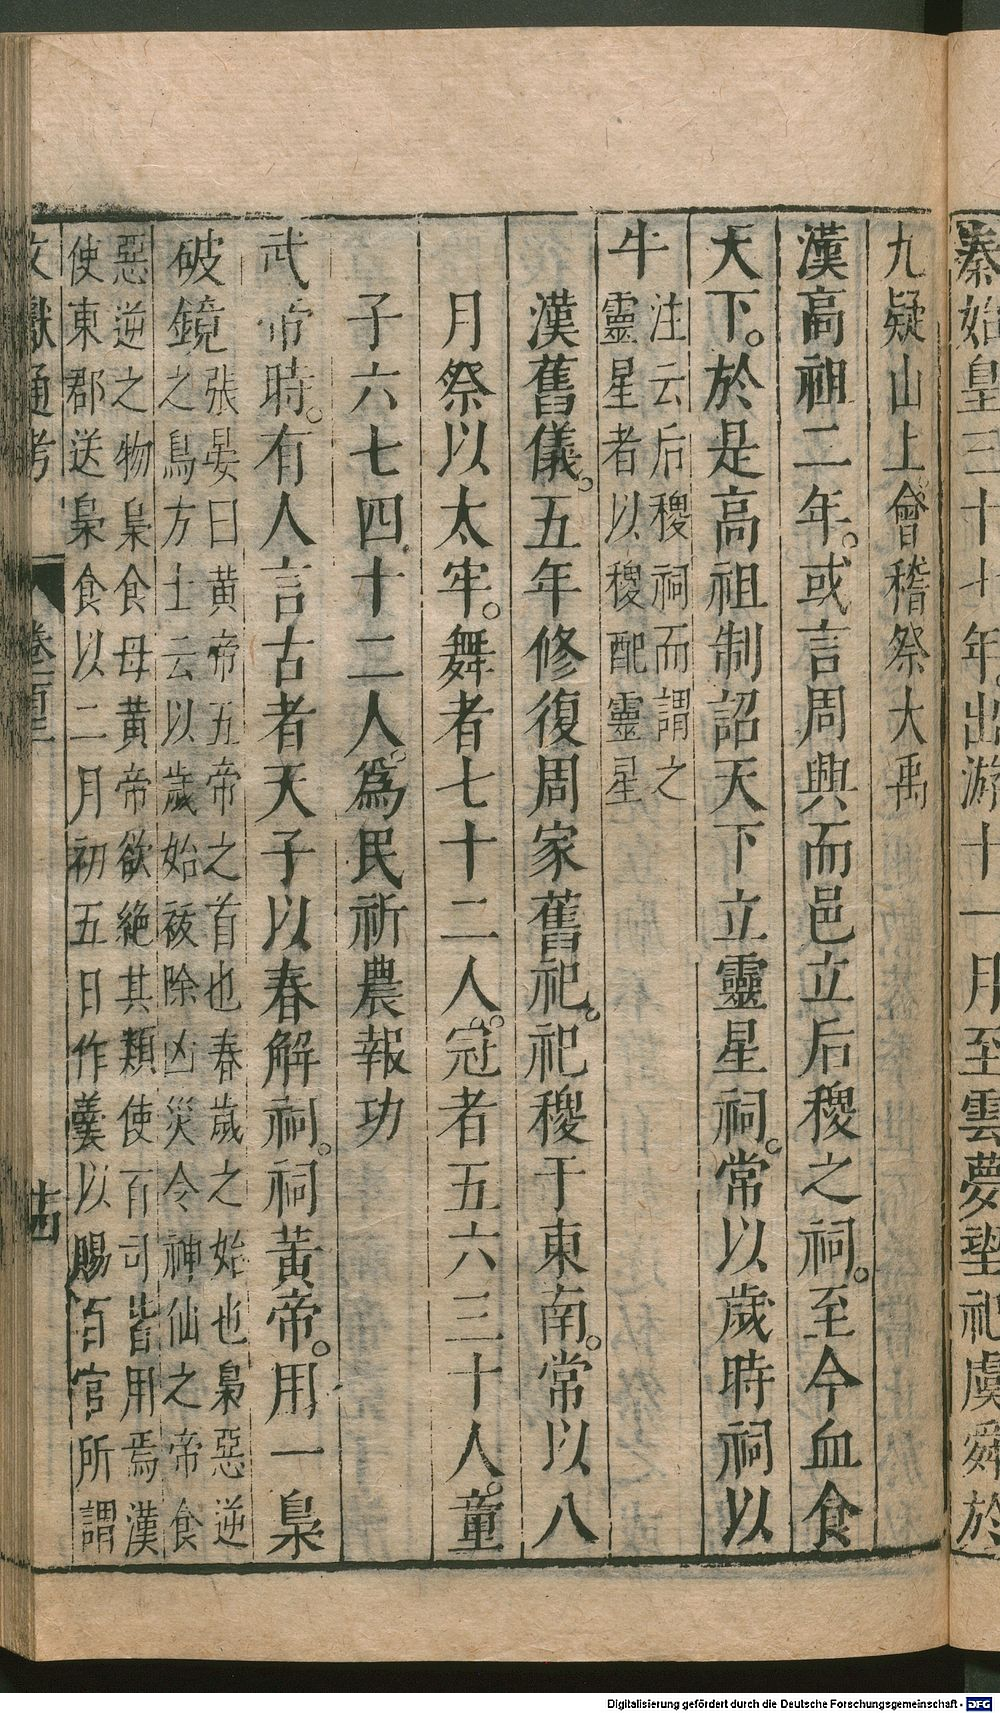 秦始皇三十七年。出游十一月至雲夢望祀虞舜於
九疑山上。會稽祭大禹
漢高祖二年。或言周興而邑立后稷之祠。至今血食
天下。於是高祖制詔天下立靈星祠。常以歲時祠以
牛
注云后稷祠而謂之
靈星者以稷配靈星
漢舊儀。五年修復周家舊祀。祀稷于東南。常以八
月祭以太牢。舞者七十二人。冠者五六三十人。童
子六七四十二人。爲民祈農報功
武帝時。有人言古者天子以春解祠。祠黃帝。用一梟
破鏡
張晏曰黃帝五帝之首也春歲之始也梟惡逆
之鳥方士云以歲始祓除凶災令神仙之帝食
惡逆之物梟食母黃帝欲絶其類使百司皆用焉漢
使東郡送梟食以二月初五日作羹以賜百官所謂
文獻通考
十四
Digitalisierung gefördert durch die Deutsche Forschungsgemeinschaft - DFG